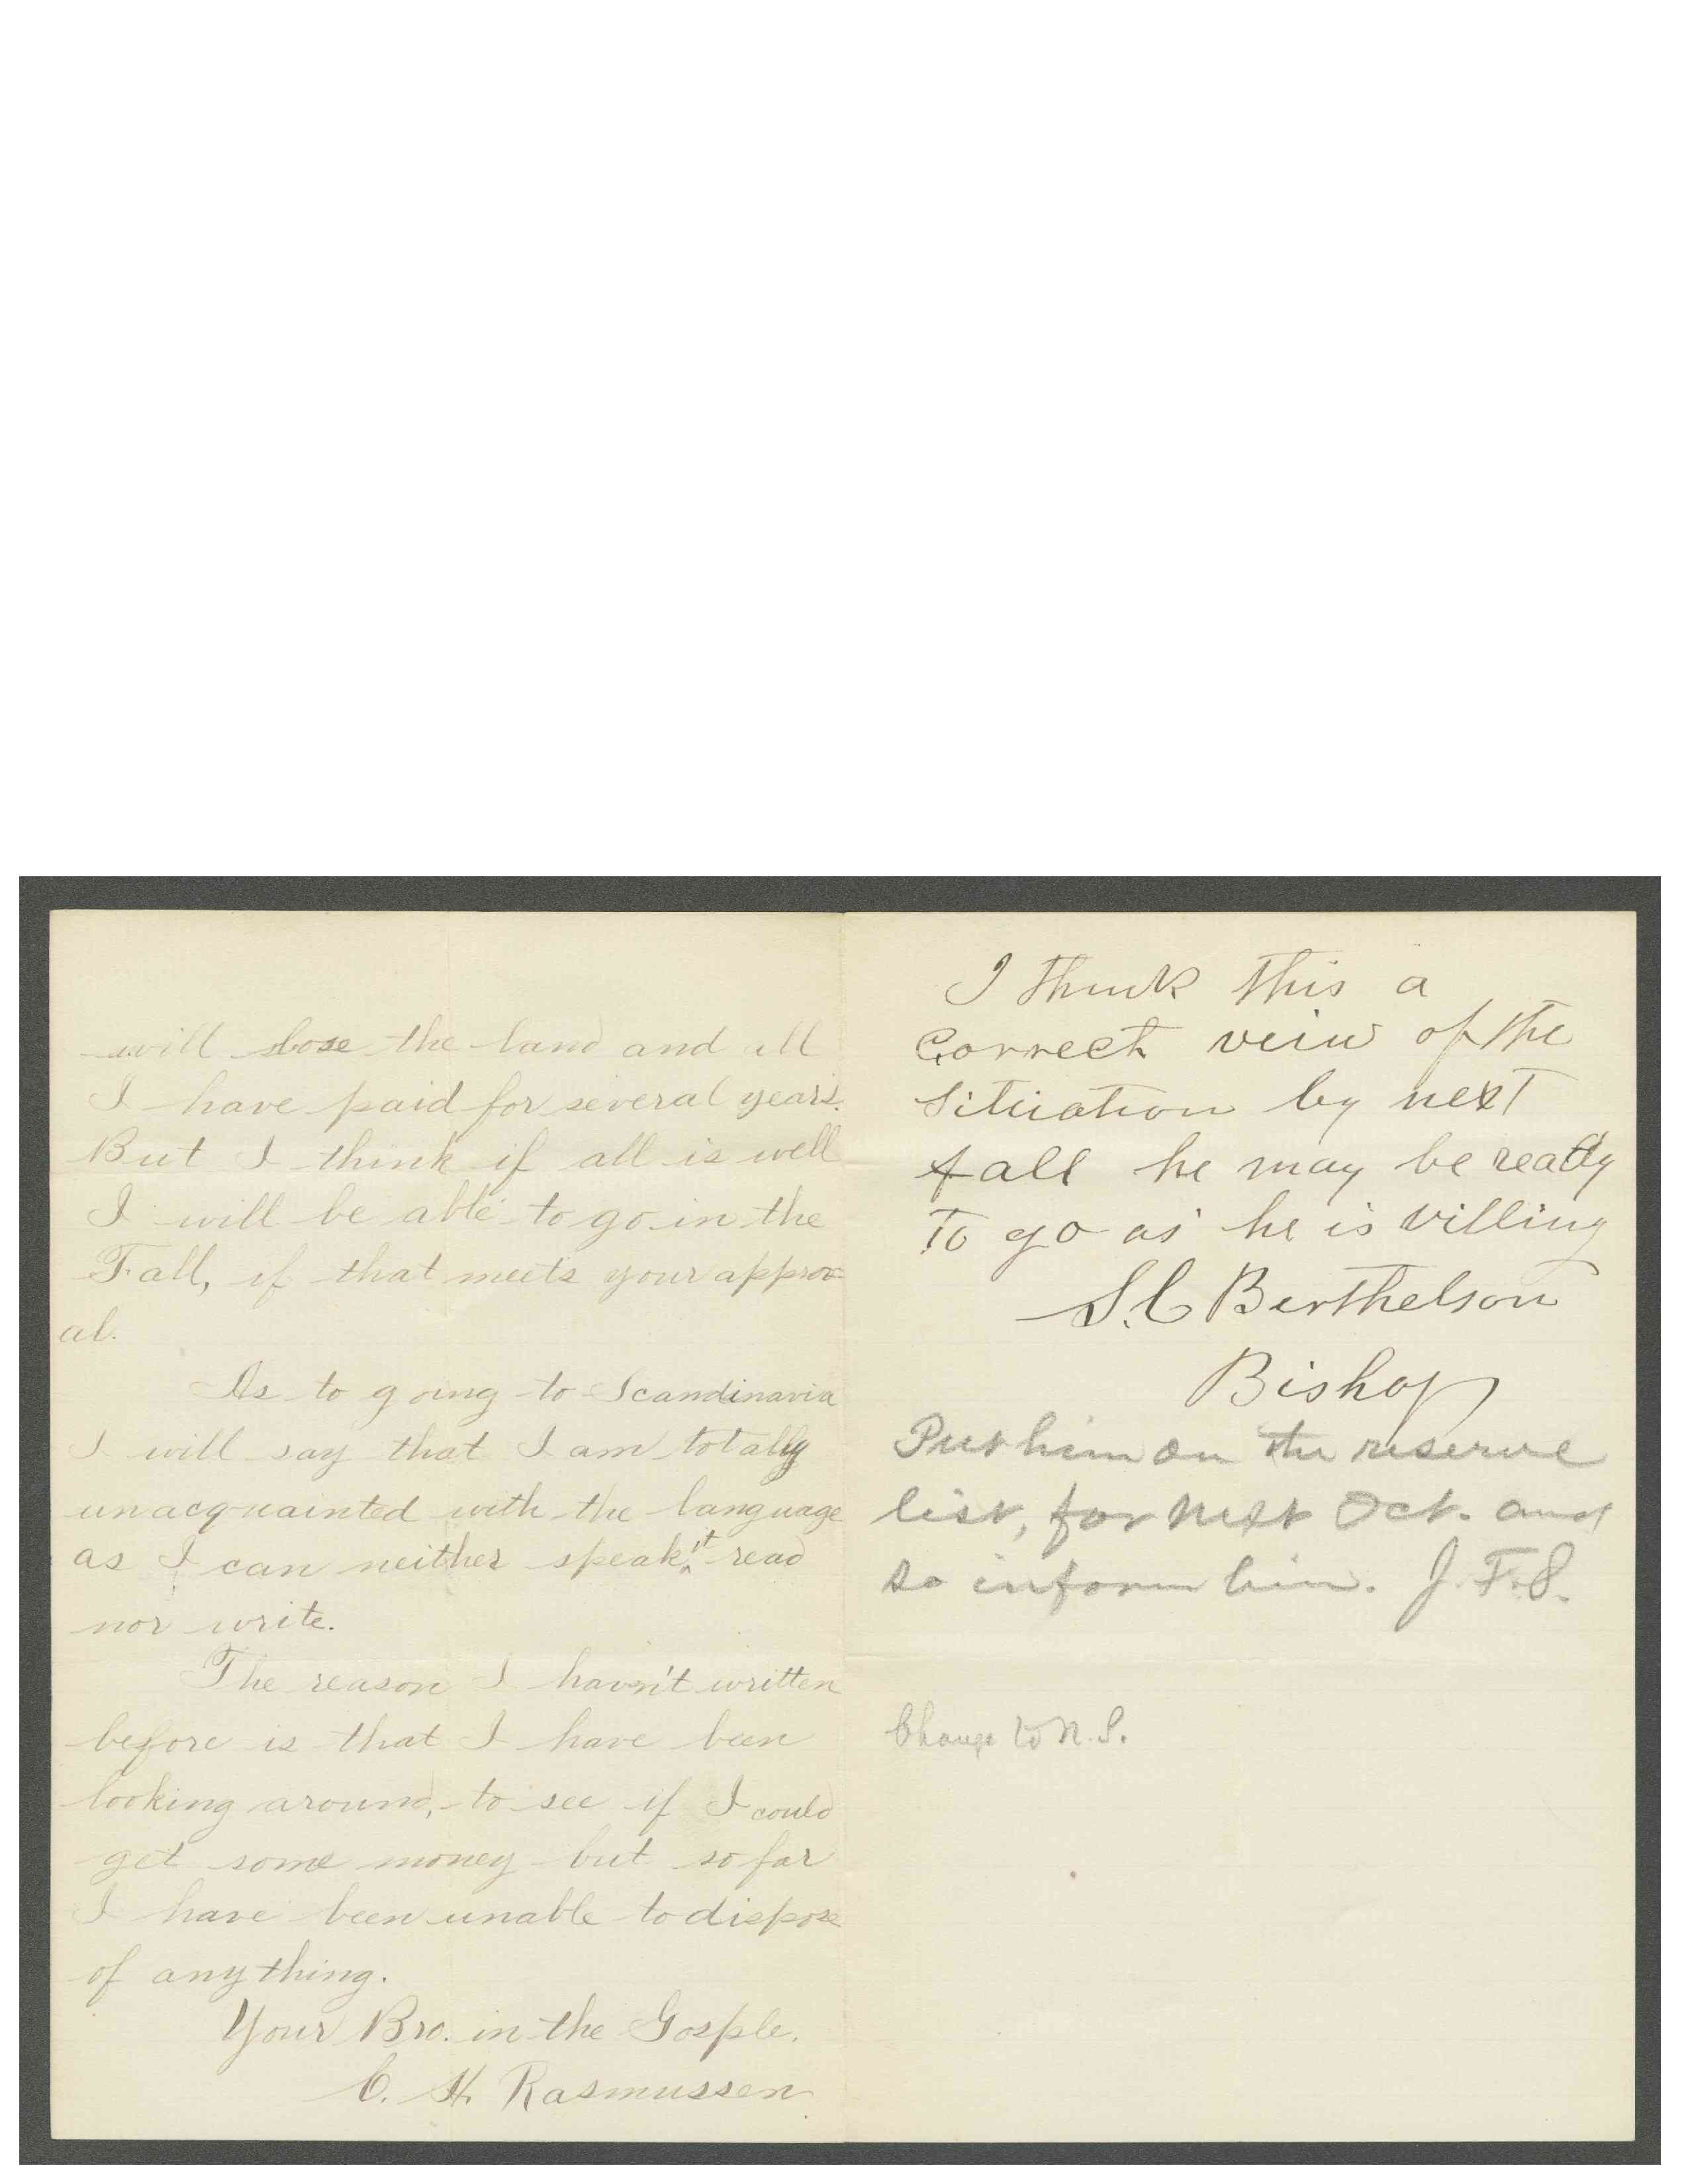 will loose the land and all
I have paid for several years.
But I think if all is well
I will be able to go in the
Fall, if that meets your approv-
al.
As to going to Scandinavia
I will say that I am totally
unacquainted with the language
as I can neither speak it read
nor write.
The reason I havn't written
before is that I have been
looking around, to see if I could
get some money but so far
I have been unable to dispose
of anything.
Your Bro. in the Gosple.
C. H. Rasmussen.
I think this a
Correct veiw of the
Situation by next
fall he may be ready
To go as he is villing
S. C. Berthelson
Bishop
Put him on the reserve
list, for next Oct. and
so inform him. J. F. S.
Change to N. S.